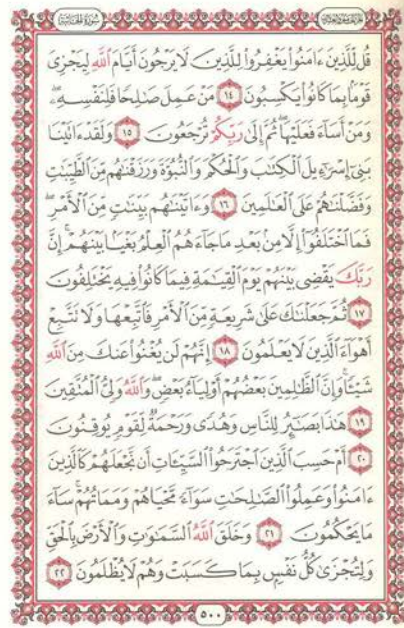 سُورَةُ الجَاثِيَةِ
قُل لِّلَّذِينَ ءَامَنُوا۟ يَغْفِرُوا۟ لِلَّذِينَ لَا يَرْجُونَ أَيَّامَ ٱللَّهِ لِيَجْزِىَ
قَوْمًۢا بِمَا كَانُوا۟ يَكْسِبُونَ ١٤ مَنْ عَمِلَ صَـٰلِحًا فَلِنَفْسِهِۦ ۖ
وَمَنْ أَسَآءَ فَعَلَيْهَا ۖ ثُمَّ إِلَىٰ رَبِّكُمْ تُرْجَعُونَ ١٥ وَلَقَدْ ءَاتَيْنَا
بَنِىٓ إِسْرَٰٓءِيلَ ٱلْكِتَـٰبَ وَٱلْحُكْمَ وَٱلنُّبُوَّةَ وَرَزَقْنَـٰهُم مِّنَ ٱلطَّيِّبَـٰتِ
وَفَضَّلْنَـٰهُمْ عَلَى ٱلْعَـٰلَمِينَ ١٦ وَءَاتَيْنَـٰهُم بَيِّنَـٰتٍ مِّنَ ٱلْأَمْرِ ۖ
فَمَا ٱخْتَلَفُوٓا۟ إِلَّا مِنۢ بَعْدِ مَا جَآءَهُمُ ٱلْعِلْمُ بَغْيًۢا بَيْنَهُمْ ۚ إِنَّ
رَبَّكَ يَقْضِى بَيْنَهُمْ يَوْمَ ٱلْقِيَـٰمَةِ فِيمَا كَانُوا۟ فِيهِ يَخْتَلِفُونَ
١٧ ثُمَّ جَعَلْنَـٰكَ عَلَىٰ شَرِيعَةٍ مِّنَ ٱلْأَمْرِ فَٱتَّبِعْهَا وَلَا تَتَّبِعْ
أَهْوَآءَ ٱلَّذِينَ لَا يَعْلَمُونَ ١٨ إِنَّهُمْ لَن يُغْنُوا۟ عَنكَ مِنَ ٱللَّهِ
شَيْـًٔا ۚ وَإِنَّ ٱلظَّـٰلِمِينَ بَعْضُهُمْ أَوْلِيَآءُ بَعْضٍ ۖ وَٱللَّهُ وَلِىُّ ٱلْمُتَّقِينَ
١٩ هَـٰذَا بَصَـٰٓئِرُ لِلنَّاسِ وَهُدًى وَرَحْمَةٌ لِّقَوْمٍ يُوقِنُونَ
٢٠ أَمْ حَسِبَ ٱلَّذِينَ ٱجْتَرَحُوا۟ ٱلسَّيِّـَٔاتِ أَن نَّجْعَلَهُمْ كَٱلَّذِينَ
ءَامَنُوا۟ وَعَمِلُوا۟ ٱلصَّـٰلِحَـٰتِ سَوَآءً مَّحْيَاهُمْ وَمَمَاتُهُمْ ۚ سَآءَ
مَا يَحْكُمُونَ ٢١ وَخَلَقَ ٱللَّهُ ٱلسَّمَـٰوَٰتِ وَٱلْأَرْضَ بِٱلْحَقِّ
وَلِتُجْزَىٰ كُلُّ نَفْسٍۭ بِمَا كَسَبَتْ وَهُمْ لَا يُظْلَمُونَ ٢٢
٥٠٠